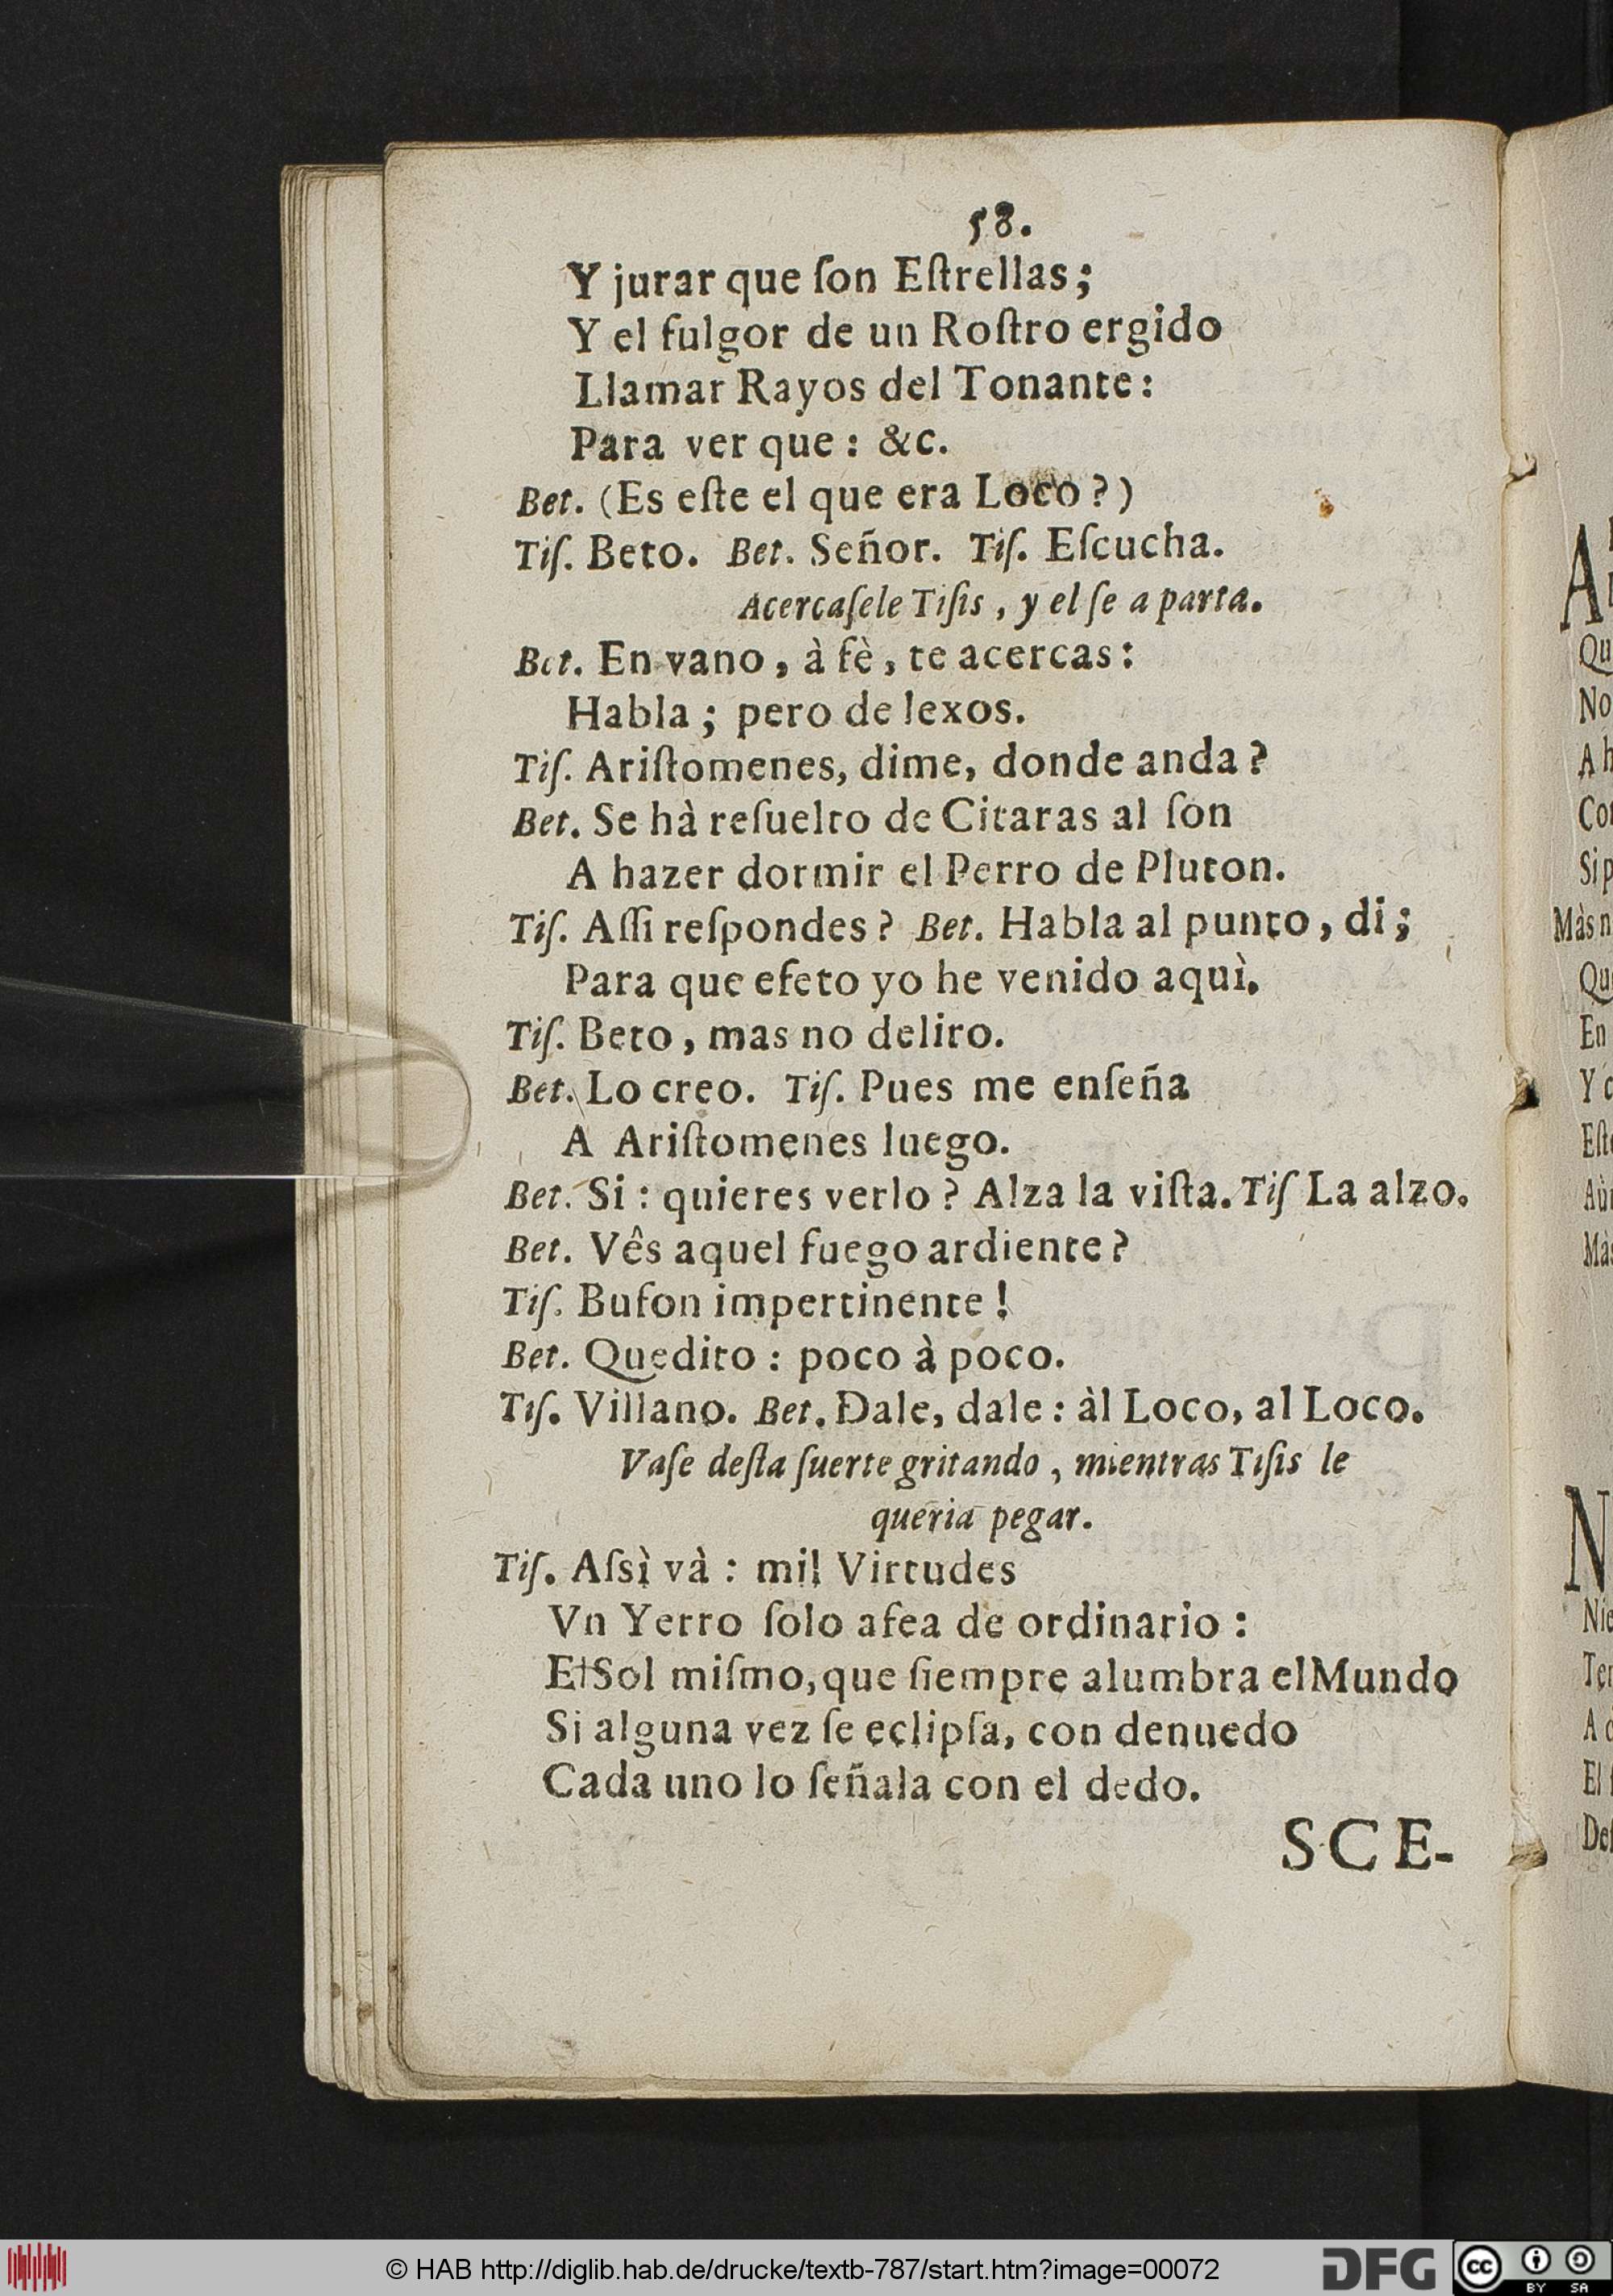 58.
Y jurar que ſon Eſtrellas;
Y el fulgor de un Roſtro ergido
Llamar Rayos del Tonante:
Para ver que: &c.
Bet. (Es eſte el que era Loco?)
Tiſ. Beto. Bet. Señor. Tiſ. Eſcucha.
Acercaſele Tiſis, y el ſe a parta.
Bet. En vano, à fè, te acercas:
Habla; pero de lexos.
Tiſ. Ariſtomenes, dime, donde anda?
Bet. Se hà reſuelto de Citaras al ſon
A hazer dormir el Perro de Pluton.
Tiſ. Aſſi reſpondes? Bet. Habla al punto, di;
Para que efeto yo he venido aquì.
Tiſ. Beto, mas no deliro.
Bet. Lo creo. Tiſ. Pues me enſeña
A Ariſtomenes luego.
Bet. Si: quieres verlo? Alza la viſta. Tiſ La alzo.
Bet. Vês aquel fuego ardiente?
Tiſ. Bufon impertinente!
Bet. Quedito: poco à poco.
Tiſ. Villano. Bet. Dale, dale: àl Loco, al Loco.
Vaſe deſta ſuerte gritando, mientras Tiſis le
queria pegar.
Tiſ. Aſsì và: mil Virtudes
Vn Yerro ſolo afea de ordinario:
El Sol miſmo, que ſiempre alumbra el Mundo
Si alguna vez ſe eclipſa, con denuedo
Cada uno lo ſeñala con el dedo.
SCE-
A
Qu
No
A h
Co
Si p
Màs n
Qu
En
Y
Eſt
Aù
Mà
N
Nie
Ter
A
El
Deſ
© HAB http://diglib.hab.de/drucke/textb-787/start.htm?image=00072
DFG
cc BY SA